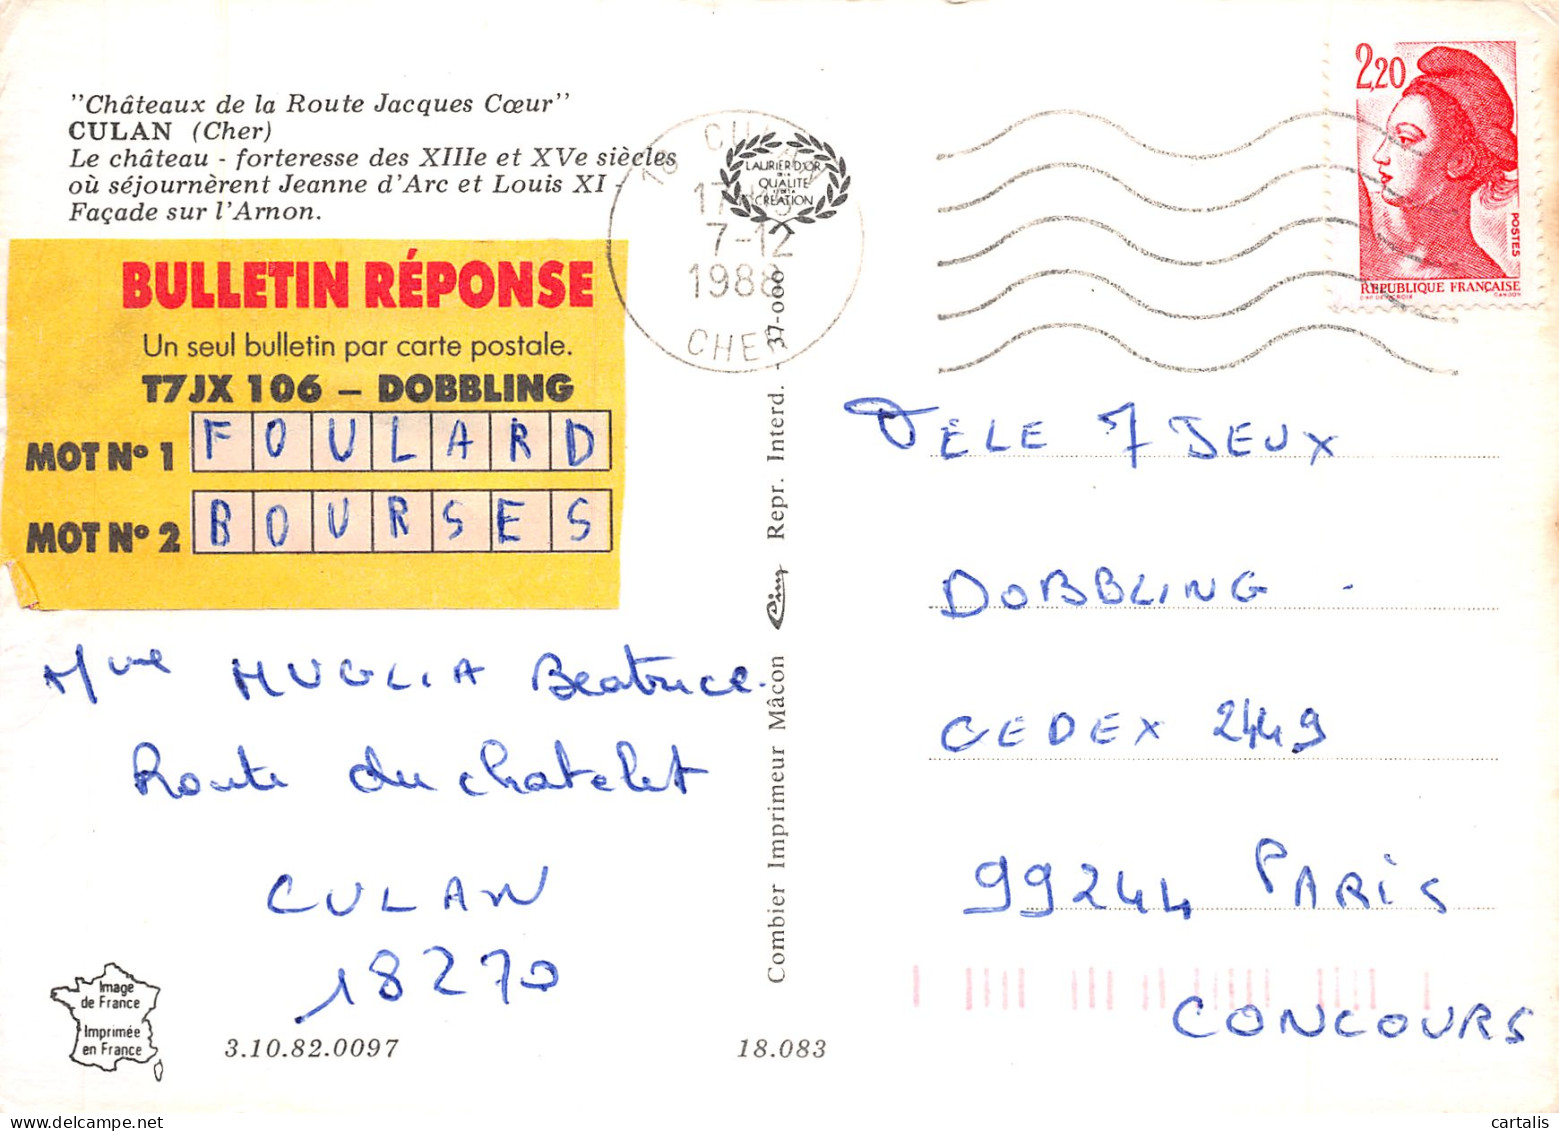 "Châteaux de la Route Jacques Cœur"
CULAN (Cher)
Le château - forteresse des XIIIe et XVe siècles
où séjournèrent Jeanne d'Arc et Louis XI -
Façade sur l'Arnon.
BULLETIN RÉPONSE
Un seul bulletin par carte postale.
T7JX 106 – DOBBLING
MOT Nº 1 FOULARD
MOT Nº 2 BOURSES
Mme MUGLIA Beatrice.
Route du chatelet
CULAN
18270
Image
de France
Imprimée
en France
3.10.82.0097
18.083
Combier Imprimeur Mâcon Cim Repr. Interd. - 37-000
LAURIER D'OR
DE LA
QUALITÉ
CRÉATION
18
7-12
1988
CHER
2,20
POSTES
REPUBLIQUE FRANÇAISE
GANDON
TELE 7 JEUX
DOBBLING -
CEDEX 2449
99244 PARIS
CONCOURS
cartalis